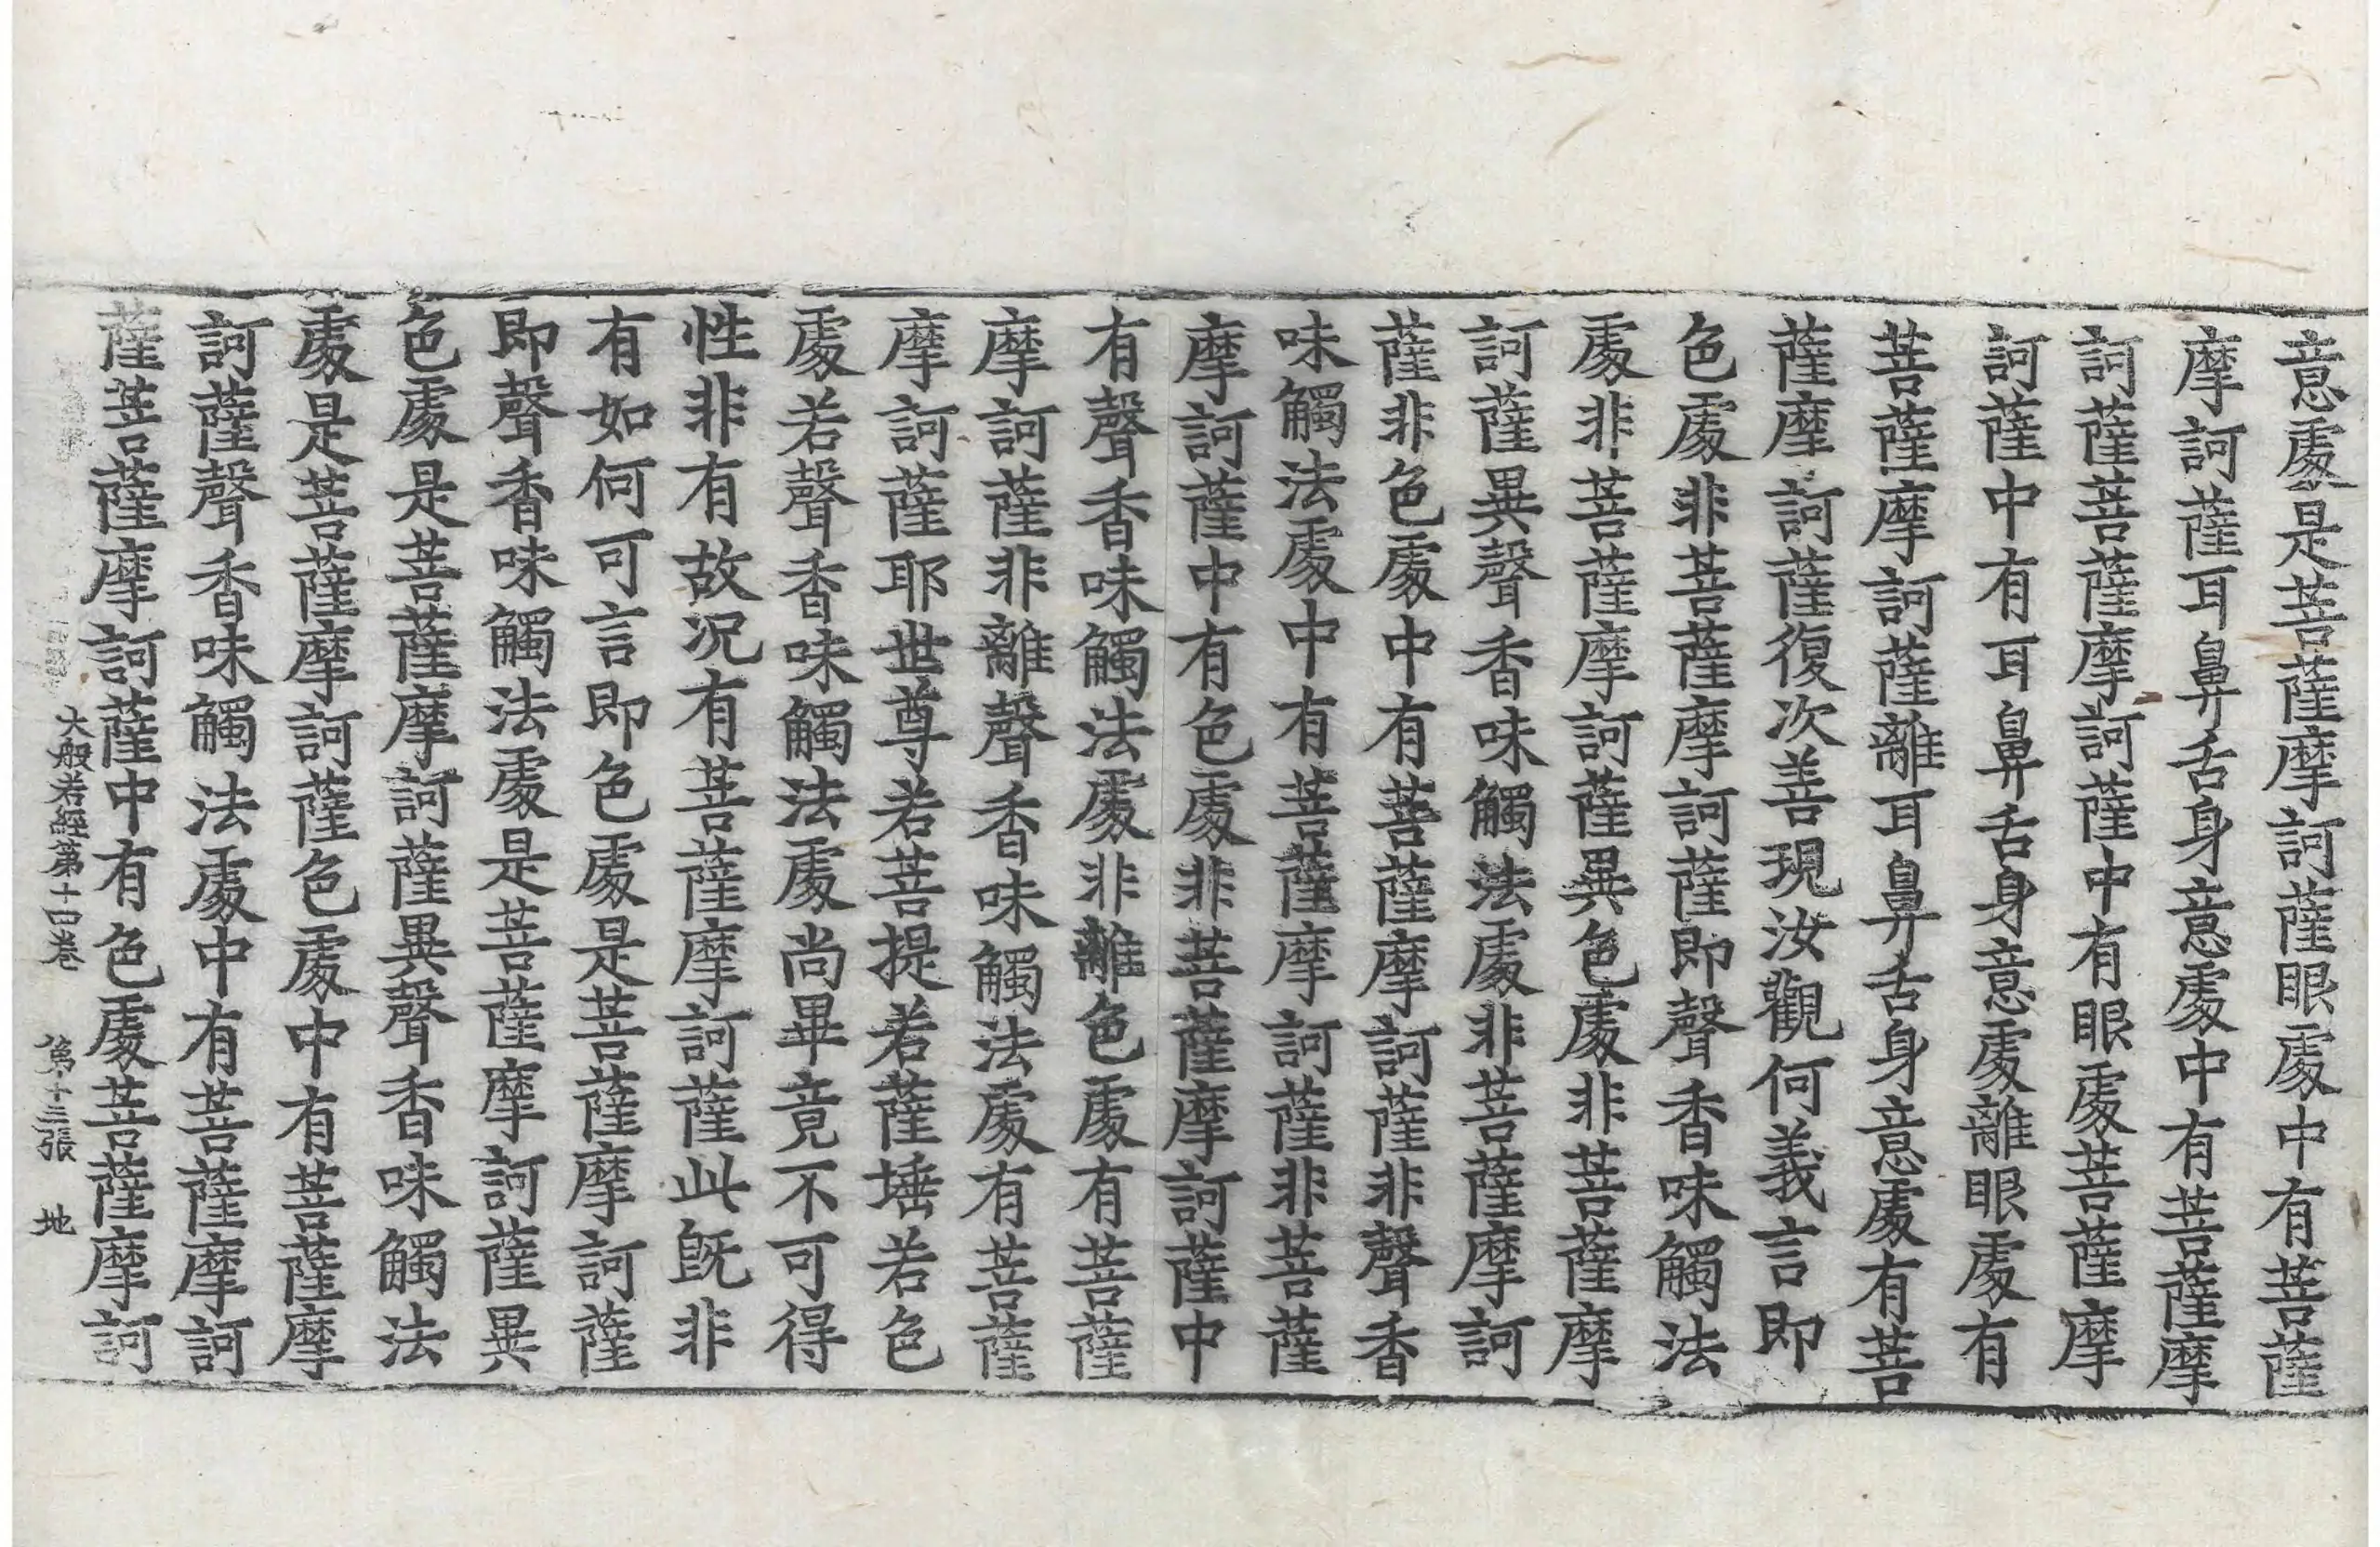 意處是菩薩摩訶薩眼處中有菩薩
摩訶薩耳鼻舌身意處中有菩薩摩
訶薩菩薩摩訶薩中有眼處菩薩摩
訶薩中有耳鼻舌身意處離眼處有
菩薩摩訶薩離耳鼻舌身意處有菩
薩摩訶薩復次善現汝觀何義言即
色處非菩薩摩訶薩即聲香味觸法
處非菩薩摩訶薩異色處非菩薩摩
訶薩異聲香味觸法處非菩薩摩訶
薩非色處中有菩薩摩訶薩非聲香
味觸法處中有菩薩摩訶薩非菩薩
摩訶薩中有色處非菩薩摩訶薩中
有聲香味觸法處非離色處有菩薩
摩訶薩非離聲香味觸法處有菩薩
摩訶薩耶世尊若菩提若薩埵若色
處若聲香味觸法處尚畢竟不可得
性非有故況有菩薩摩訶薩此既非
有如何可言即色處是菩薩摩訶薩
即聲香味觸法處是菩薩摩訶薩異
色處是菩薩摩訶薩異聲香味觸法
處是菩薩摩訶薩色處中有菩薩摩
訶薩聲香味觸法處中有菩薩摩訶
薩菩薩摩訶薩中有色處菩薩摩訶
大般若經第十四卷 第十三張 地